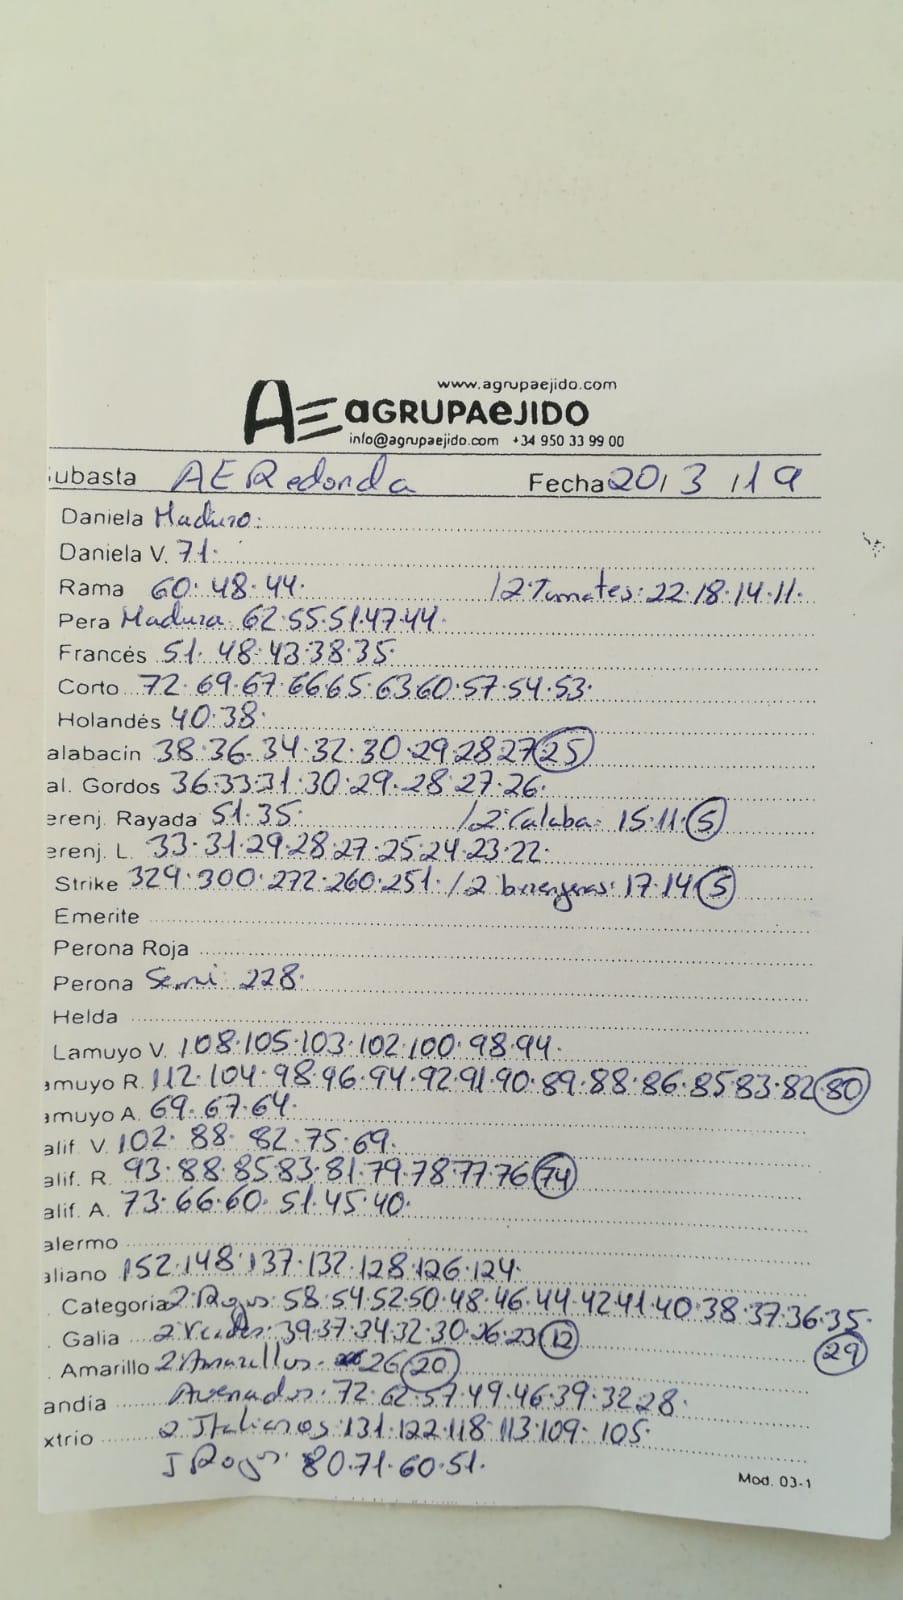 www.agrupaejido.com
AE aGRUPAeJIDO
info@agrupaejido.com +34 950 33 99 00
ubasta AE Redonda Fecha 20/3/19
Daniela Maduro:
Daniela V. 71.
Rama 60. 48. 44. / 2 Tomates: 22.18.14.11.
Pera Madura 62.55.51.47.44.
Francés 51. 48.43.38.35.
Corto 72.69.67.66.65.63.60.57.54.53.
Holandés 40.38.
alabacín 38.36.34.32.30.29.28.27.25
al. Gordos 36.33.31.30.29.28.27.26.
erenj. Rayada 51.35. / 2 Calaba: 15.11.5
erenj. L. 33.31.29.28.27.25.24.23.22.
Strike 329.300.272.260.251. / 2 berenjenas: 17.14.5
Emerite
Perona Roja
Perona Semi 228.
Helda
Lamuyo V. 108.105.103.102.100.98.94.
amuyo R. 112.104.98.96.94.92.91.90.89.88.86.85.83.82.80
amuyo A. 69.67.64.
alif. V. 102. 88. 82.75.69.
alif. R. 93.88.85.83.81.79.78.77.76.74
alif. A. 73.66.60. 51.45.40.
alermo
aliano 152.148.137.132.128.126.124.
. Categoría 2 Rojos: 58.54.52.50.48.46.44.42.41.40.38.37.36.35.
. Galia 2 Verdes: 39.37.34.32.30.26.23.12 29
. Amarillo 2 Amarillos. 26.20
andía Asenados: 72.62.57.49.46.39.32.28.
xtrio 2 Italianos: 131.122.118.113.109.105.
J Rojos: 80.71.60.51.
Mod. 03-1